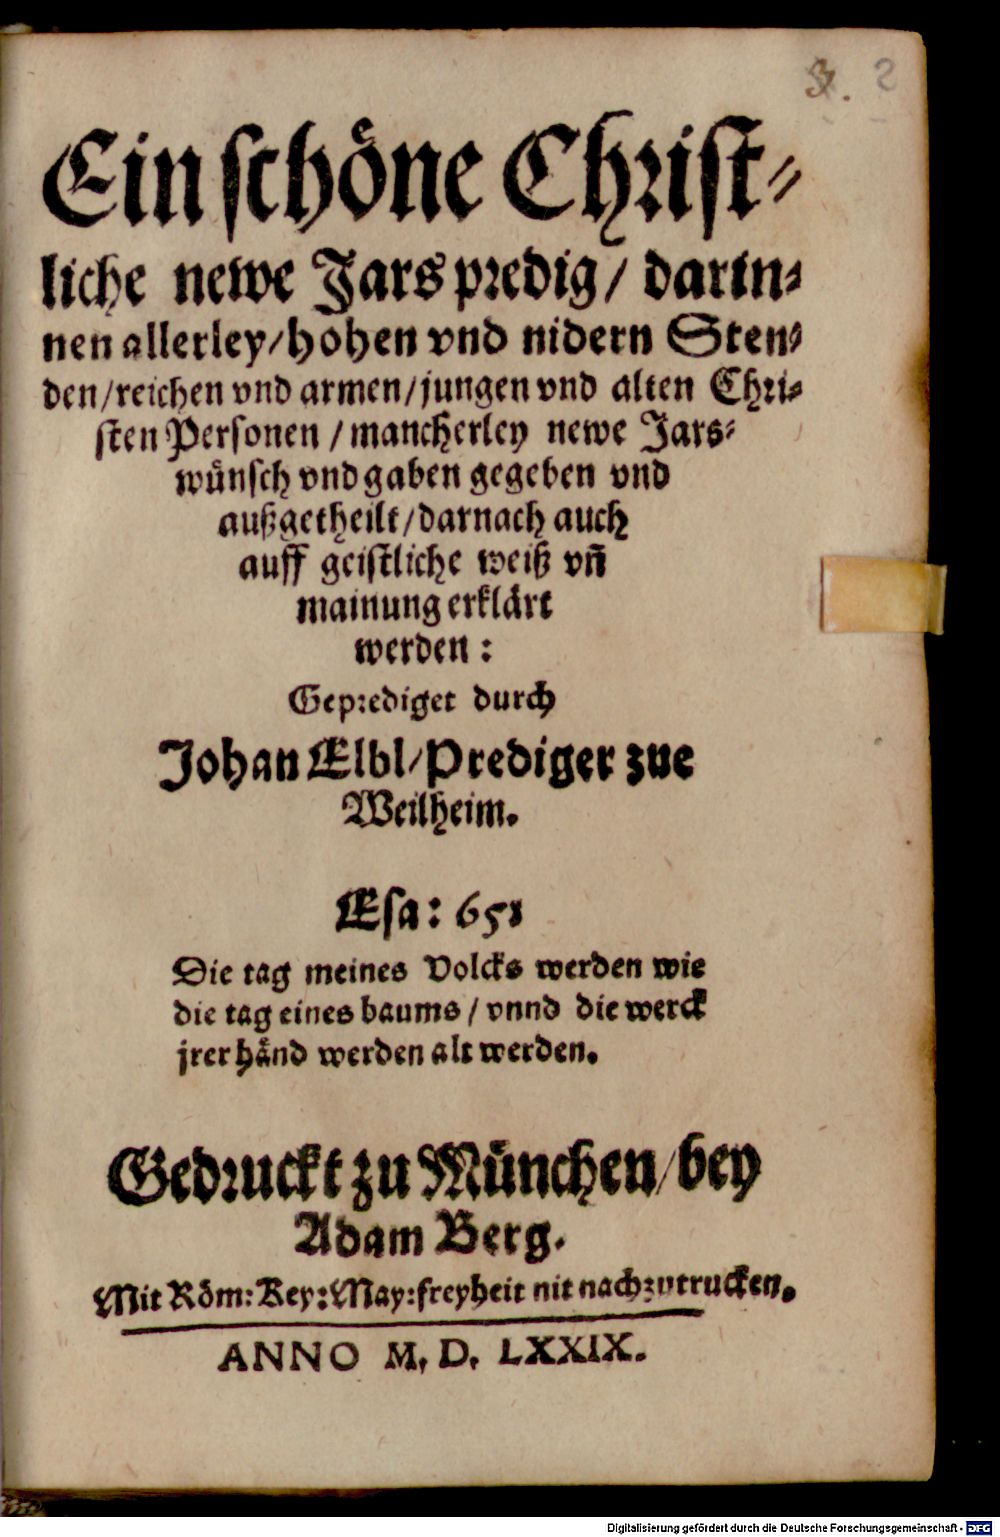 2
Ein schöne Christ-
liche newe Jars predig/ darin-
nen allerley/hohen vnd nidern Sten-
den/reichen vnd armen/jungen vnd alten Chri-
sten Personen/mancherley newe Jars-
wünsch vnd gaben gegeben vnd
außgetheilt/darnach auch
auff geistliche weiß vñ
mainung erklärt
werden:
Geprediget durch
Johan Elbl/Prediger zue
Weilheim.
Esa: 65.
Die tag meines Volcks werden wie
die tag eines baums/vnnd die werck
jrer händ werden alt werden.
Gedruckt zu München/bey
Adam Berg.
Mit Röm: Key: May: freyheit nit nachzutrucken.
ANNO M. D. LXXIX.
Digitalisierung gefördert durch die Deutsche Forschungsgemeinschaft - DFG